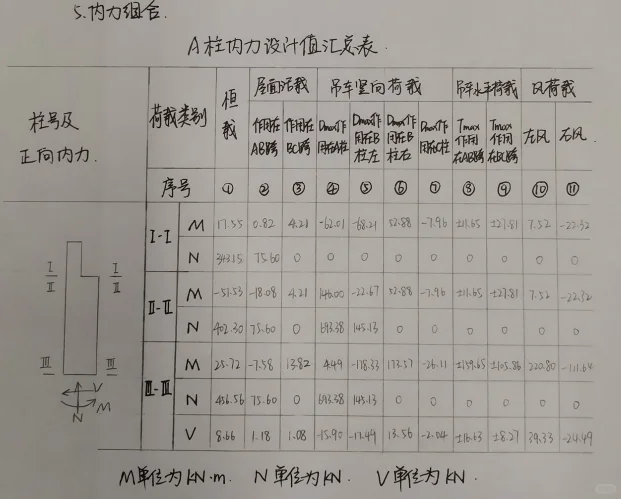 5.内力组合.
A柱内力设计值汇总表.
柱号及正向内力. 荷载类别 恒载 屋面活载 吊车竖向荷载 吊车水平荷载 风荷载
作用在AB跨 作用在BC跨 Dmax作用在A柱 Dmax作用在B柱左 Dmax作用在B柱右 Dmax作用在C柱 Tmax作用在AB跨 Tmax作用在BC跨 左风 右风
序号 ① ② ③ ④ ⑤ ⑥ ⑦ ⑧ ⑨ ⑩ ⑪
I-I M 17.55 0.82 4.21 -62.01 -68.21 52.88 -7.96 ±11.65 ±27.81 7.52 -22.32
N 343.15 75.60 0 0 0 0 0 0 0 0 0
II-II M -51.53 -18.08 4.21 146.00 -22.67 52.88 -7.96 ±11.65 ±27.81 7.52 -22.32
N 402.30 75.60 0 693.38 145.13 0 0 0 0 0 0
III-III M 25.72 -7.58 13.82 4.49 -178.33 173.57 -26.11 ±159.65 ±105.86 220.80 -111.64
N 456.56 75.60 0 693.38 145.13 0 0 0 0 0 0
V 8.66 1.18 1.08 -15.90 -17.49 13.56 -2.04 ±16.63 ±8.27 39.33 -24.49
I I
II II
III III
V
M
N
M单位为KN·m. N单位为KN. V单位为KN.